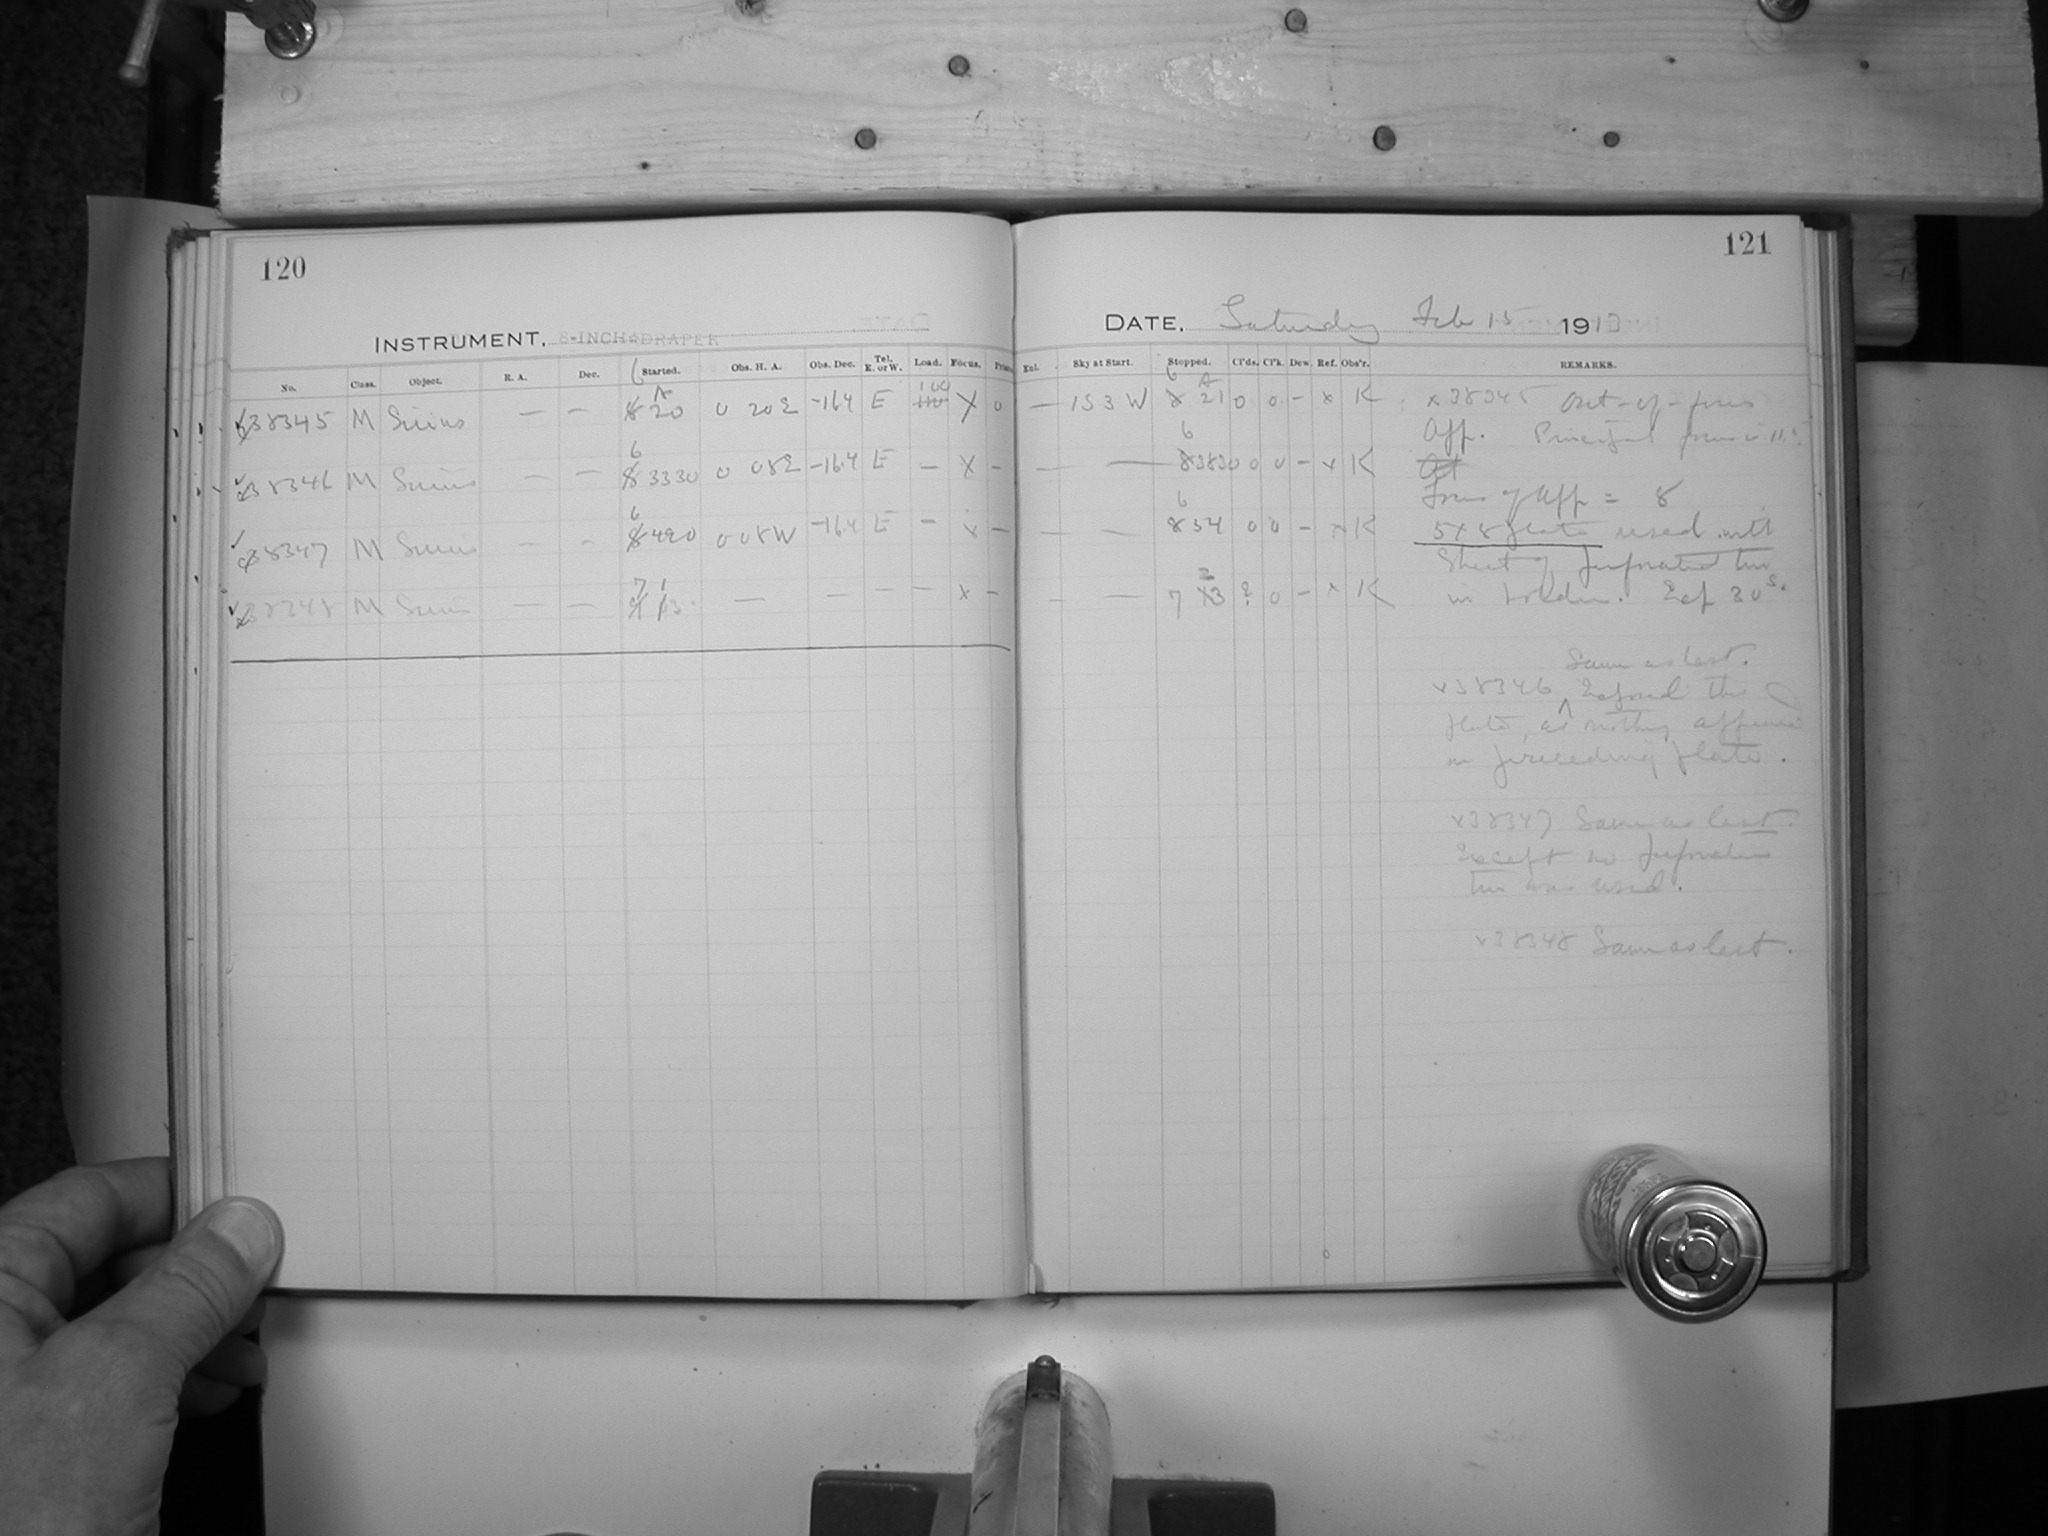 120
121
INSTRUMENT, 8-INCH DRAPER
DATE, Saturday Feb 15 1913
No. Class. Object. R. A. Dec. Started. Obs. H. A. Obs. Dec. Tel. E. or W. Load. Focus. Prism
Ext. Sky at Start. Stopped. Cl'ds. Cl'k. Dew. Ref. Obs'r. REMARKS.
38345 M Sirius — — 6 20 0 20 E -16.4 E 100 X 0 — 1 S 3 W 6 21 0 0 - x K
38346 M Sirius — — 6 8 3330 0 08 E -16.4 E — X - — — 6 8 3830 0 0 - x K
38347 M Sirius - - 6 8 490 0 08 W -16.4 E - x - — — 6 8 54 0 0 - x K
38348 M Sirius — — 7 13 — — — — x - - — 7 3 ? 0 - x K
x 38345 Out-of-focus
App. Principal focus is 11.5
Focus of App = 8
5x8 plate used with
Sheet of perforated tin
in holder. Exp 30s.
Same as last.
x38346 Exposed this
plate, as nothing appeared
on preceding plate.
x38347 Same as last.
Except no perforated
tin was used.
x38348 Same as last.